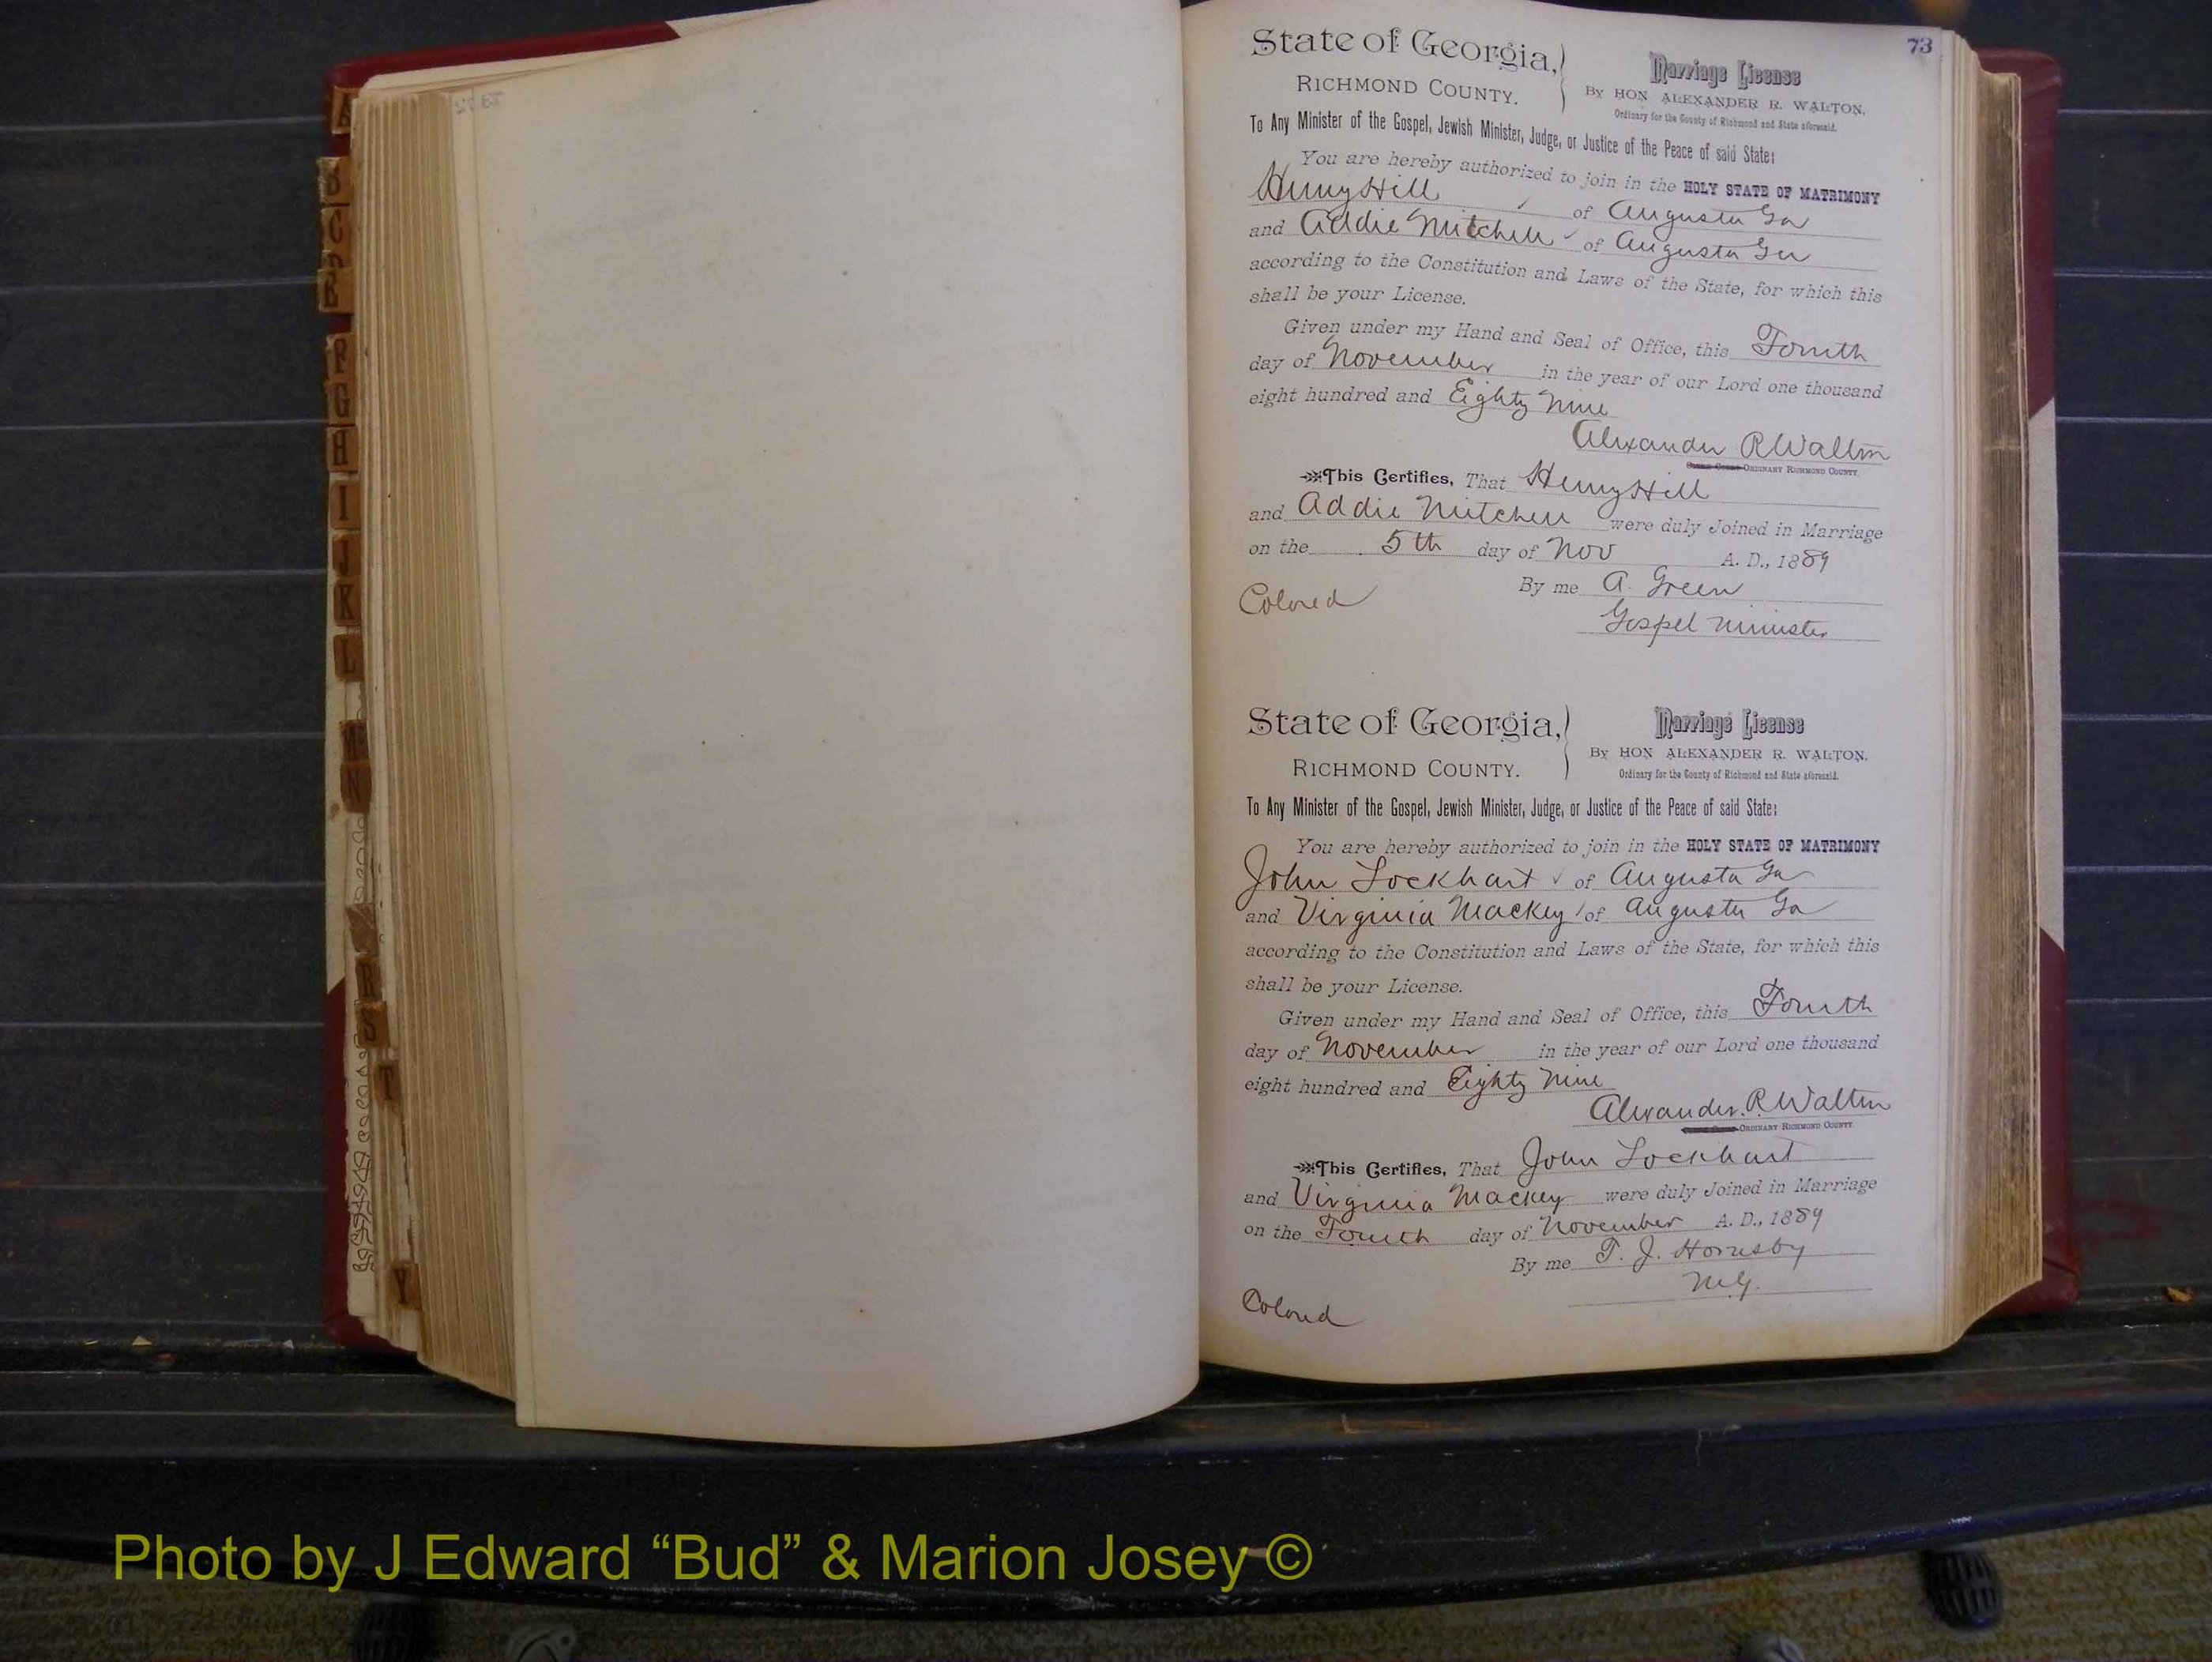 73
State of Georgia,
RICHMOND COUNTY.
Marriage License
By HON ALEXANDER R. WALTON,
Ordinary for the County of Richmond and State aforesaid.
To Any Minister of the Gospel, Jewish Minister, Judge, or Justice of the Peace of said State:
You are hereby authorized to join in the HOLY STATE OF MATRIMONY
Henry Hill of Augusta Ga
and Addie Mitchell of Augusta Ga
according to the Constitution and Laws of the State, for which this
shall be your License.
Given under my Hand and Seal of Office, this Fourth
day of November in the year of our Lord one thousand
eight hundred and Eighty Nine
Alexander R Walton
ORDINARY RICHMOND COUNTY.
This Certifies, That Henry Hill
and Addie Mitchell were duly Joined in Marriage
on the 5th day of Nov A. D., 1889
By me A. Green
Colored
Gospel Minister
State of Georgia,
RICHMOND COUNTY.
Marriage License
By HON ALEXANDER R. WALTON.
Ordinary for the County of Richmond and State aforesaid.
To Any Minister of the Gospel, Jewish Minister, Judge, or Justice of the Peace of said State:
You are hereby authorized to join in the HOLY STATE OF MATRIMONY
John Lockhart of Augusta Ga
and Virginia Mackey of Augusta Ga
according to the Constitution and Laws of the State, for which this
shall be your License.
Given under my Hand and Seal of Office, this Fourth
day of November in the year of our Lord one thousand
eight hundred and Eighty Nine
Alexander R Walton
ORDINARY RICHMOND COUNTY
This Certifies, That John Lockhart
and Virginia Mackey were duly Joined in Marriage
on the Fourth day of November A. D., 1889
By me T. J. Hornsby
M.G.
Colored
A
B
C
F
G
H
I
J
K
L
M
N
R
S
T
Y
Photo by J Edward “Bud” & Marion Josey ©